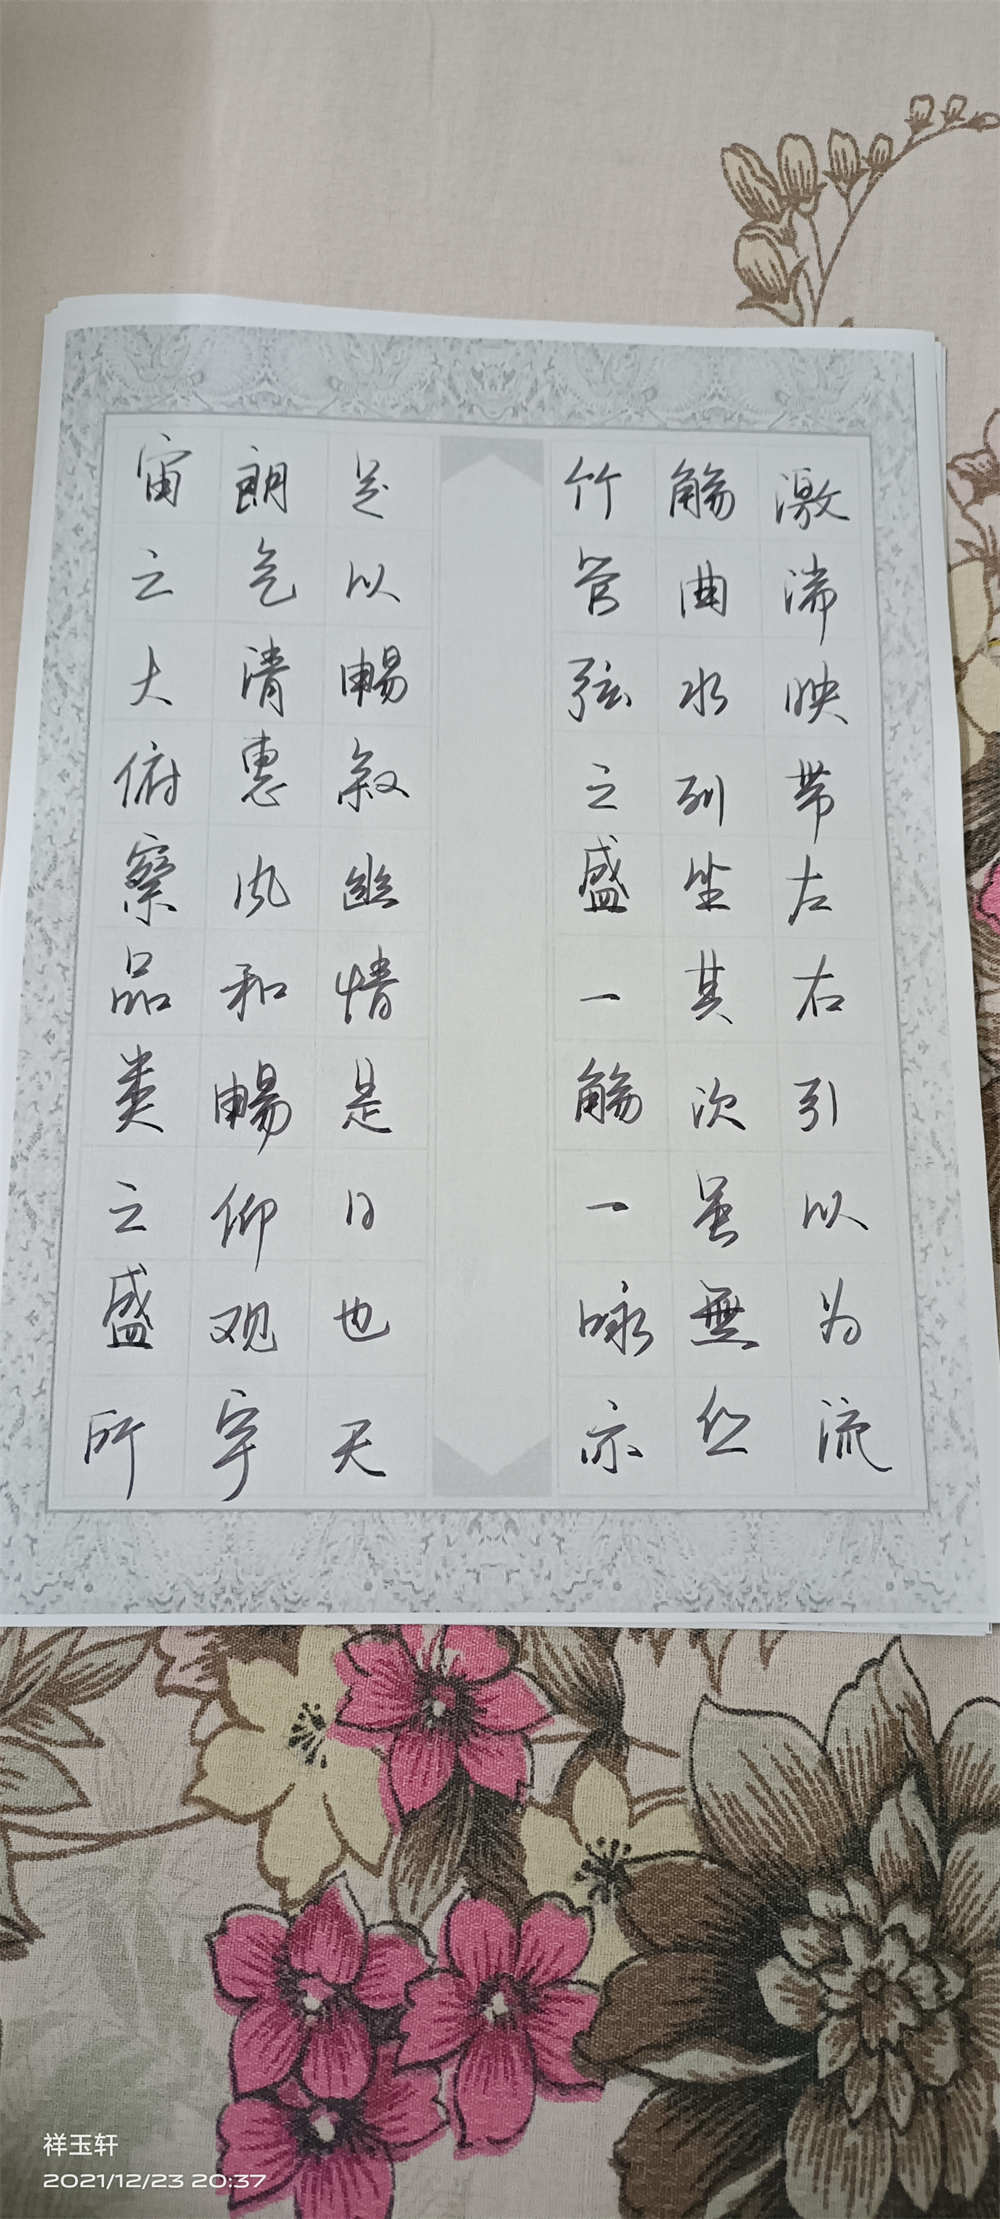 激湍映带左右引以为流
觞曲水列坐其次虽無丝
竹管弦之盛一觞一咏亦
足以暢叙幽情是日也天
朗气清惠风和暢仰观宇
宙之大俯察品类之盛所
祥玉轩
2021/12/23 20:37